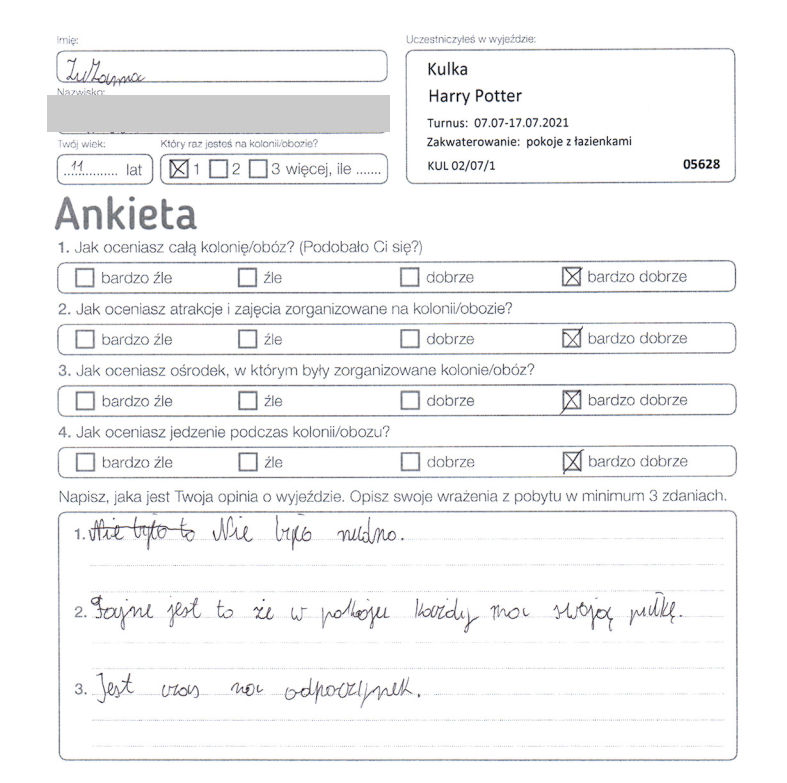 Imię:
Zuzanna
Nazwisko:
Twój wiek:
11 lat
Który raz jesteś na kolonii/obozie?
1 2 3 więcej, ile .......
Uczestniczyłeś w wyjeździe:
Kulka
Harry Potter
Turnus: 07.07-17.07.2021
Zakwaterowanie: pokoje z łazienkami
KUL 02/07/1 05628
Ankieta
1. Jak oceniasz całą kolonię/obóz? (Podobało Ci się?)
bardzo źle źle dobrze bardzo dobrze
2. Jak oceniasz atrakcje i zajęcia zorganizowane na kolonii/obozie?
bardzo źle źle dobrze bardzo dobrze
3. Jak oceniasz ośrodek, w którym były zorganizowane kolonie/obóz?
bardzo źle źle dobrze bardzo dobrze
4. Jak oceniasz jedzenie podczas kolonii/obozu?
bardzo źle źle dobrze bardzo dobrze
Napisz, jaka jest Twoja opinia o wyjeździe. Opisz swoje wrażenia z pobytu w minimum 3 zdaniach.
1. Nie było to Nie było nudno.
2. Fajne jest to że w pokoju każdy ma swoją półkę.
3. Jest czas na odpoczynek.